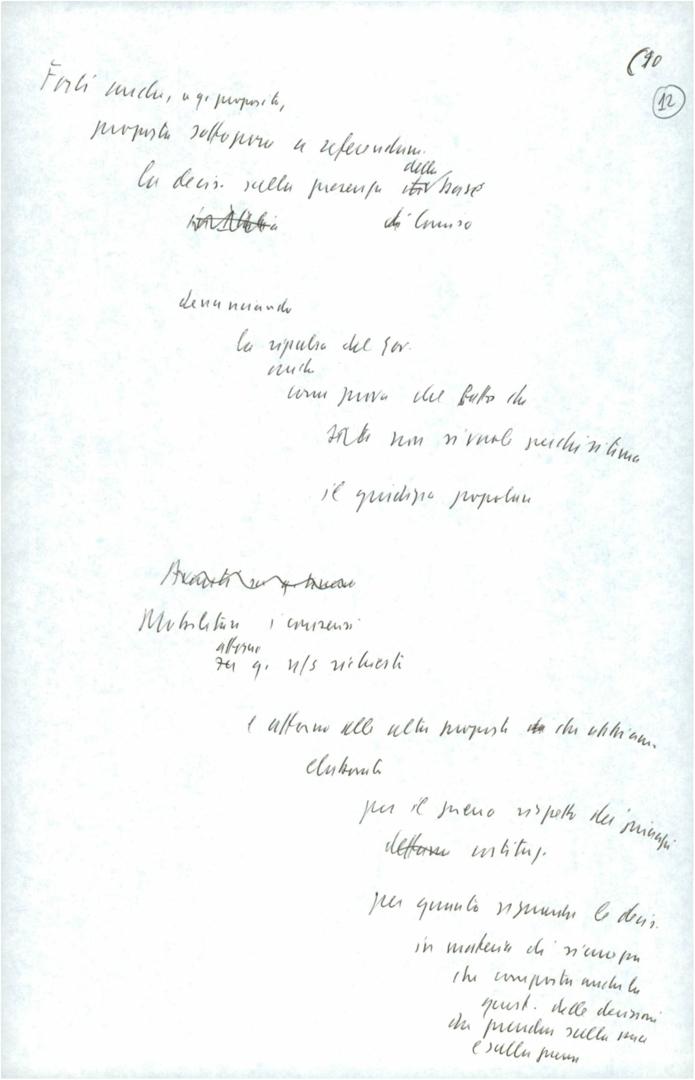 (90
12
Forti anche, a q. proposito,
proposta sottoporre a referendum
della
la decis. sulla presenza base
di Comiso
denunciando
la ripulsa del gov.
anche
come prova del fatto che
non si vuole perché si tema
il giudizio popolare
Mobilitare i consensi
attorno
q. n/s richiesta
e attorno alle altre proposte che abbiam.
elaborato
per il pieno rispetto dei principi
costituz.
per quanto riguarda le decis.
in materia di
che comporta anche la
quest. delle decisioni
da prendere sulla pace
e sulla guerra